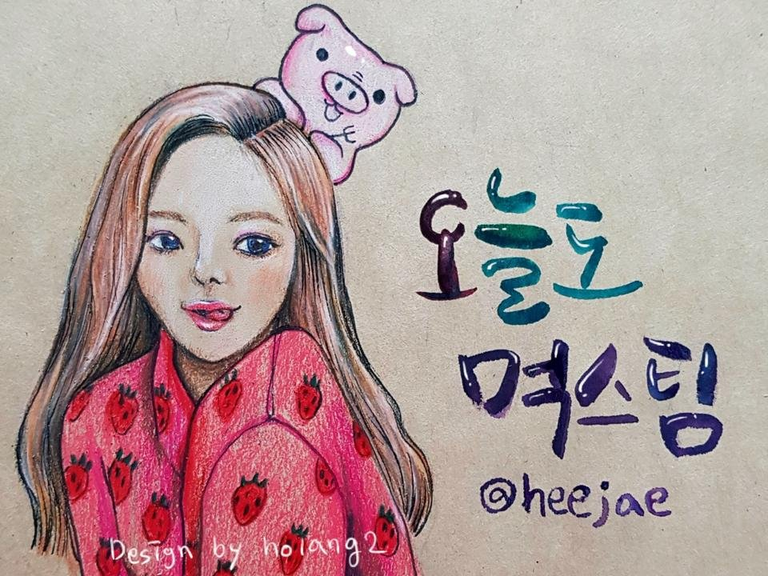 오늘도
멱스팀
@heejae
Design by holang2